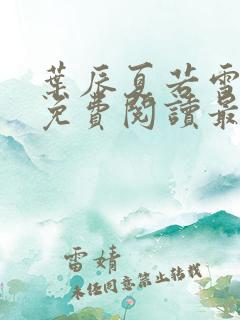 葉辰夏若雪
免費閱讀最
雷婧
未经同意禁止转载